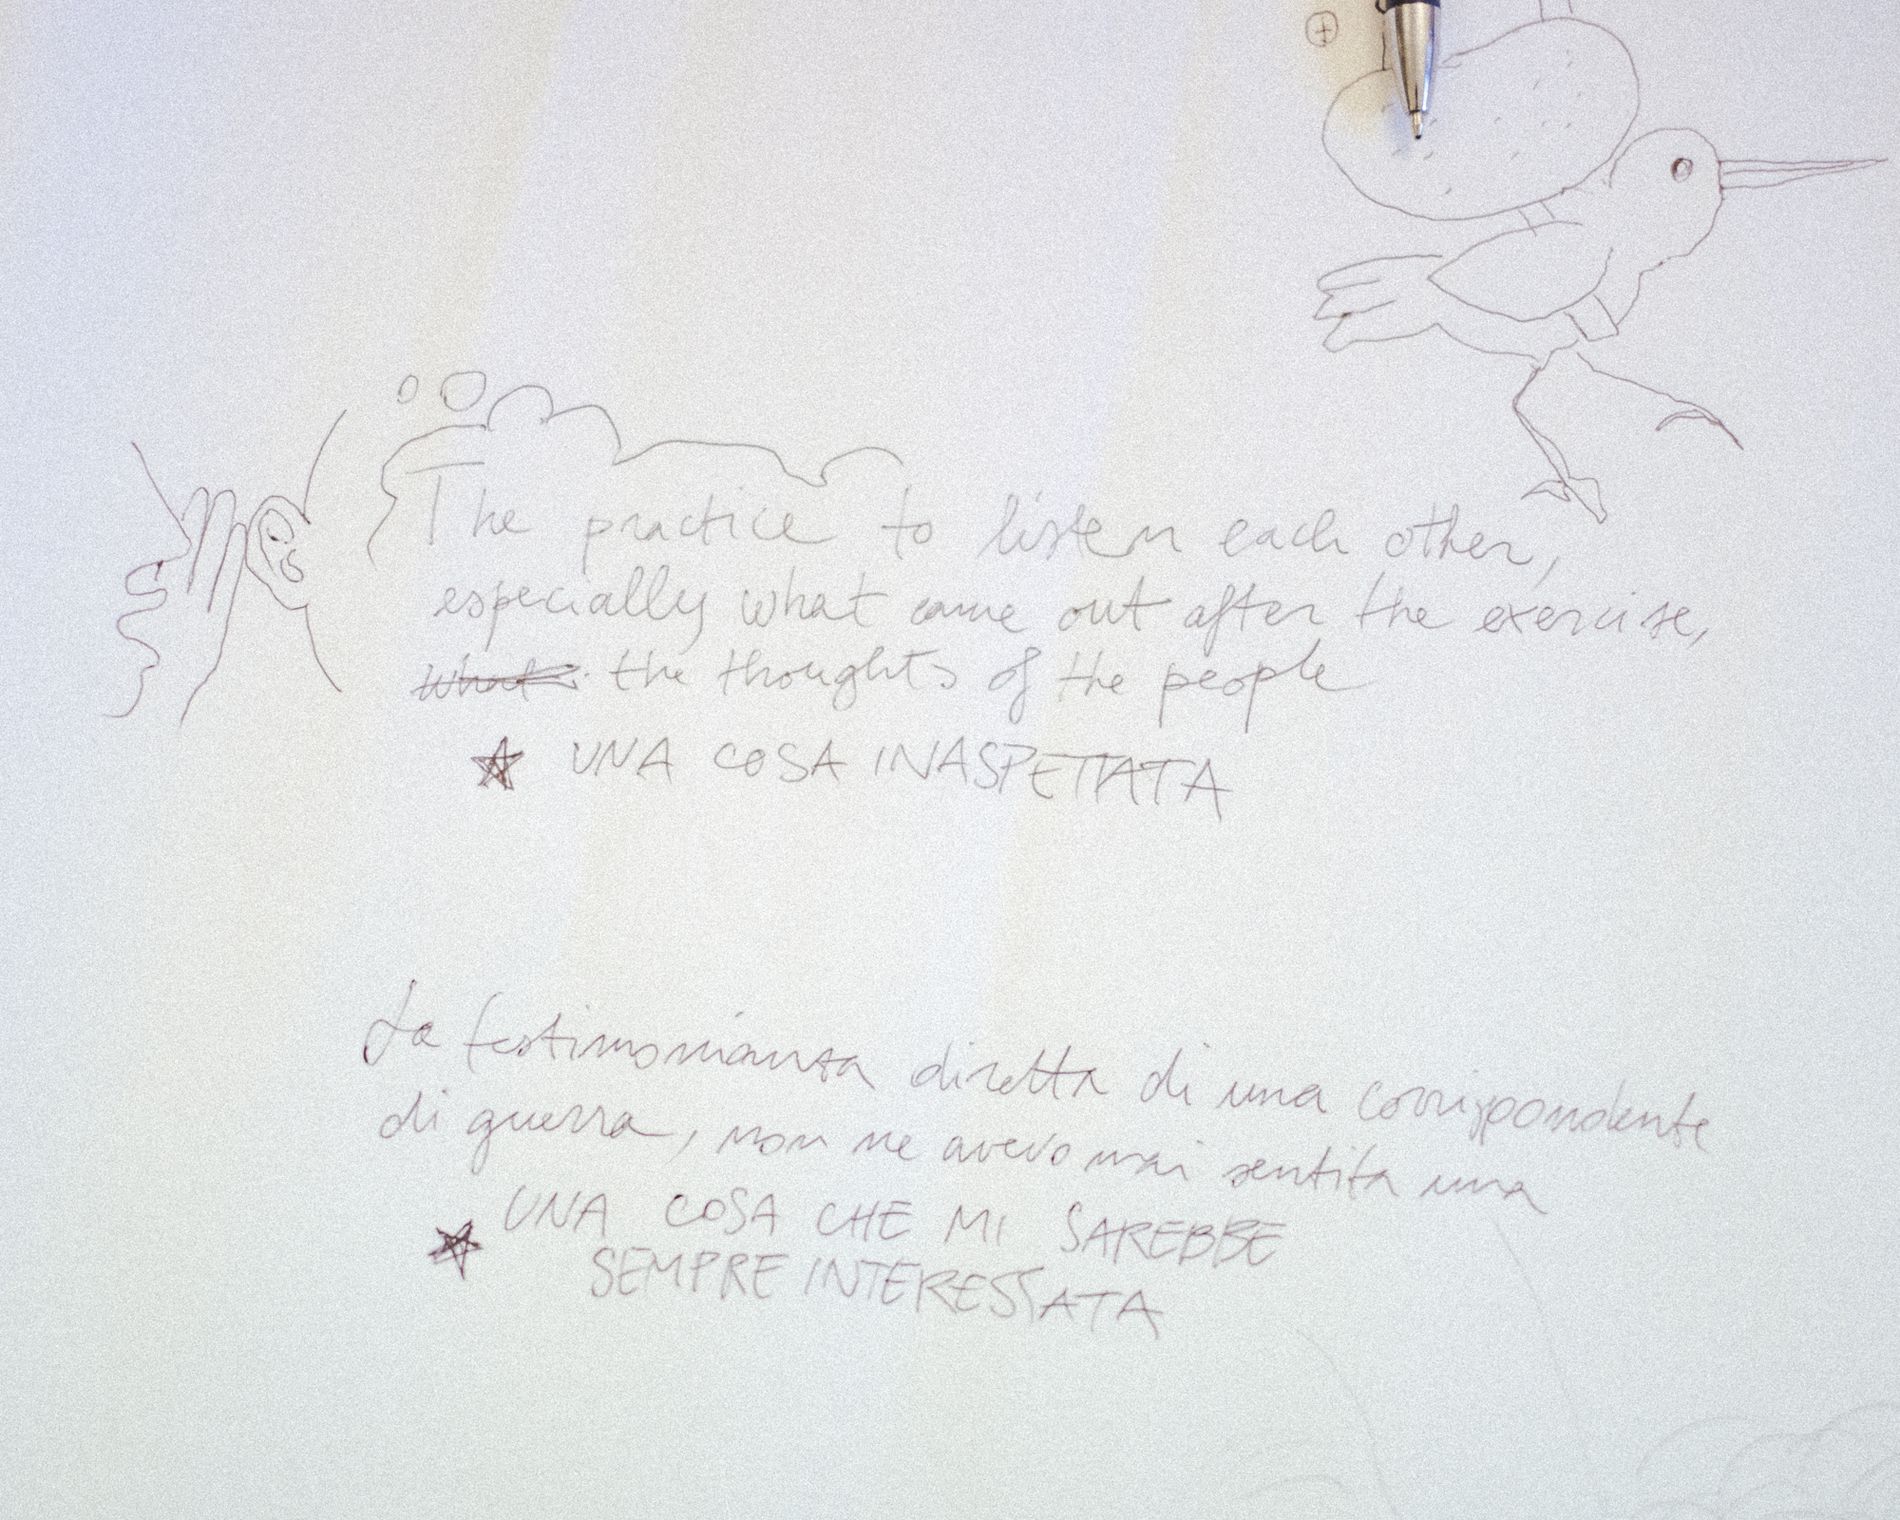 The practice to listen each other,
especially what came out after the exercise,
What the thoughts of the people
UNA COSA INASPETTATA
La testimonianza diretta di una corrispondente
di guerra, non ne avevo mai sentita una
UNA COSA CHE MI SAREBBE
SEMPRE INTERESSATA